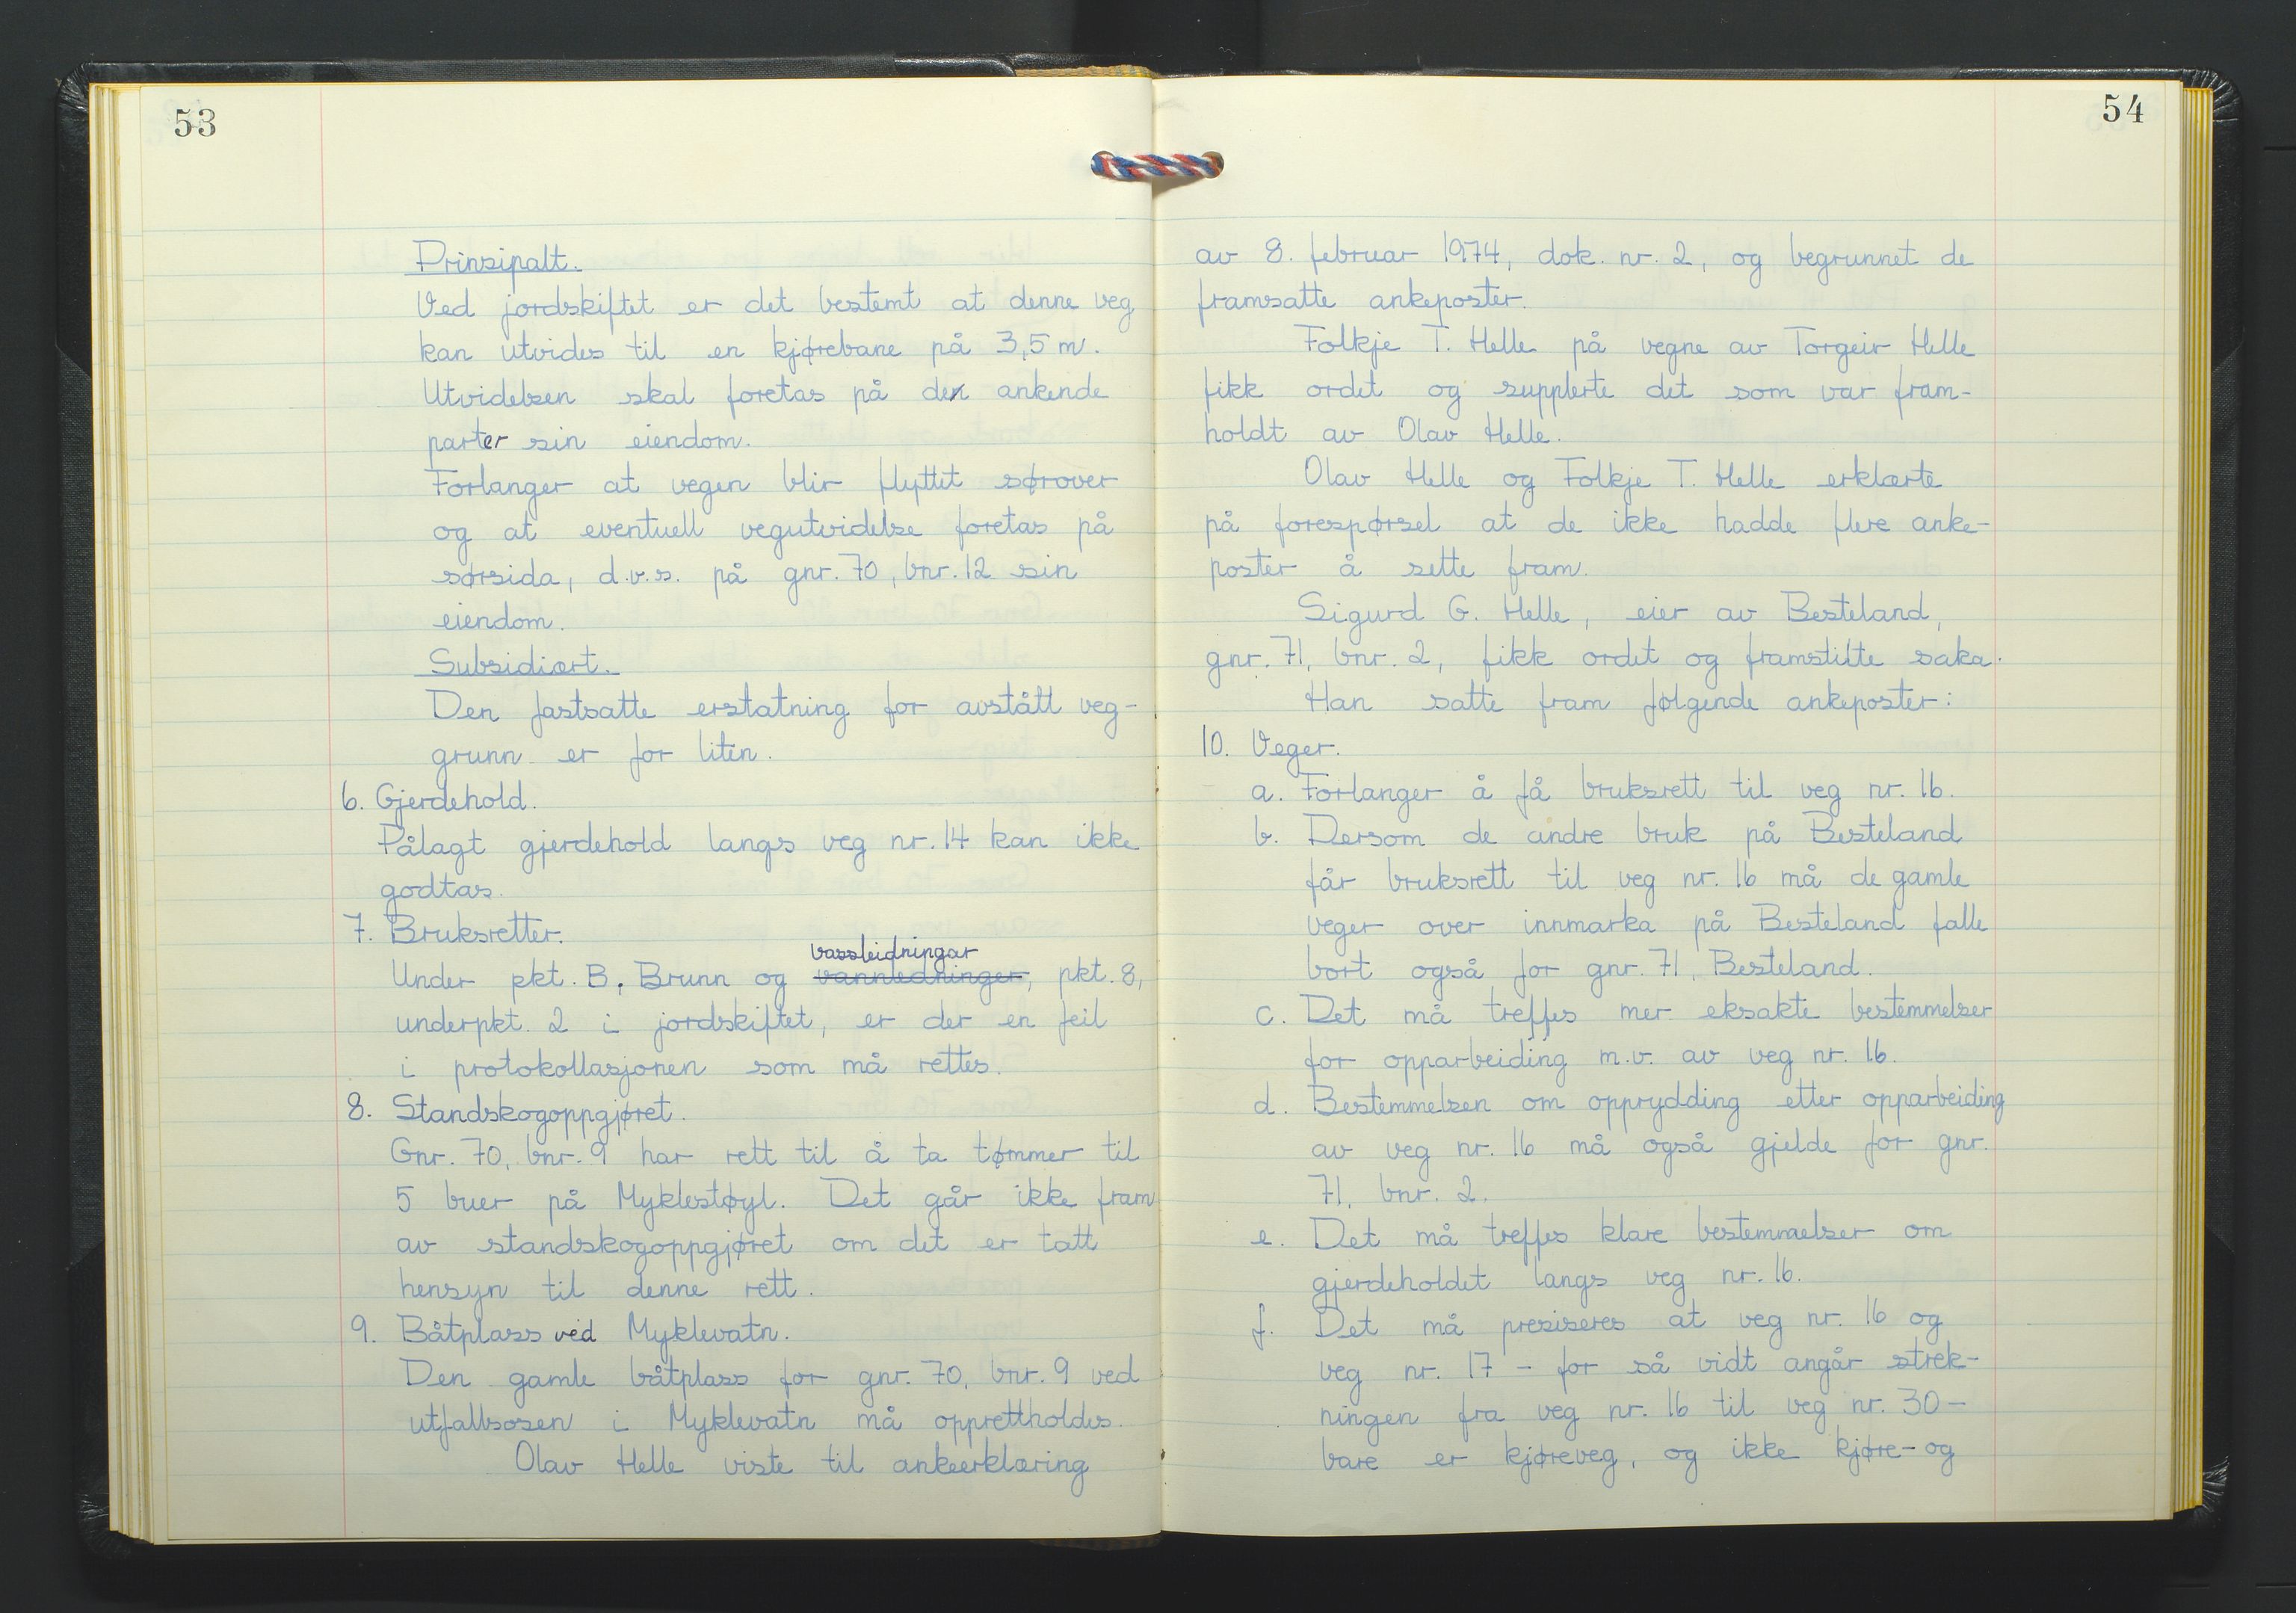 53
Prinsipalt.
Ved jordskiftet er det bestemt at denne veg
kan utvides til en kjørebane på 3,5 m.
Utvidelsen skal foretas på den ankende
parter sin eiendom.
Forlanger at vegen blir flyttet sørover
og at eventuell vegutvidelse foretas på
sørsida, d.v.s. på gnr. 70, bnr. 12 sin
eiendom.
Subsidiært.
Den fastsatte erstatning for avstått veg-
grunn er for liten.
6. Gjerdehold.
Pålagt gjerdehold langs veg nr. 14 kan ikke
godtas.
7. Bruksretter.
vassleidningar
Under pkt. B, Brunn og vannledninger, pkt. 8,
underpkt. 2 i jordskiftet, er der en feil
i protokollasjonen som må rettes.
8. Standskogoppgjøret.
Gnr. 70, bnr. 9 har rett til å ta tømmer til
5 buer på Myklestøyl. Det går ikke fram
av standskogoppgjøret om det er tatt
hensyn til denne rett.
9. Båtplass ved Myklevatn.
Den gamle båtplass for gnr. 70, bnr. 9 ved
utfallsosen i Myklevatn må opprettholdes.
Olav Helle viste til ankeerklæring
54
av 8. februar 1974, dok. nr. 2, og begrunnet de
framsatte ankeposter.
Folkje T. Helle på vegne av Torgeir Helle
fikk ordet og supplerte det som var fram-
holdt av Olav Helle.
Olav Helle og Folkje T. Helle erklærte
på forespørsel at de ikke hadde flere anke-
poster å sette fram.
Sigurd G. Helle, eier av Besteland,
gnr. 71, bnr. 2, fikk ordet og framstilte saka.
Han satte fram følgende ankeposter:
10. Veger.
a. Forlanger å få bruksrett til veg nr. 16.
b. Dersom de andre bruk på Besteland
får bruksrett til veg nr. 16 må de gamle
veger over innmarka på Besteland falle
bort også for gnr. 71, Besteland.
c. Det må treffes mer eksakte bestemmelser
for opparbeiding m.v. av veg nr. 16.
d. Bestemmelsen om opprydding etter opparbeiding
av veg nr. 16 må også gjelde for gnr.
71, bnr. 2.
e. Det må treffes klare bestemmelser om
gjerdeholdet langs veg nr. 16.
f. Det må presiseres at veg nr. 16 og
veg nr. 17 - for så vidt angår strek-
ningen fra veg nr. 16 til veg nr. 30 -
bare er kjøreveg, og ikke kjøre- og